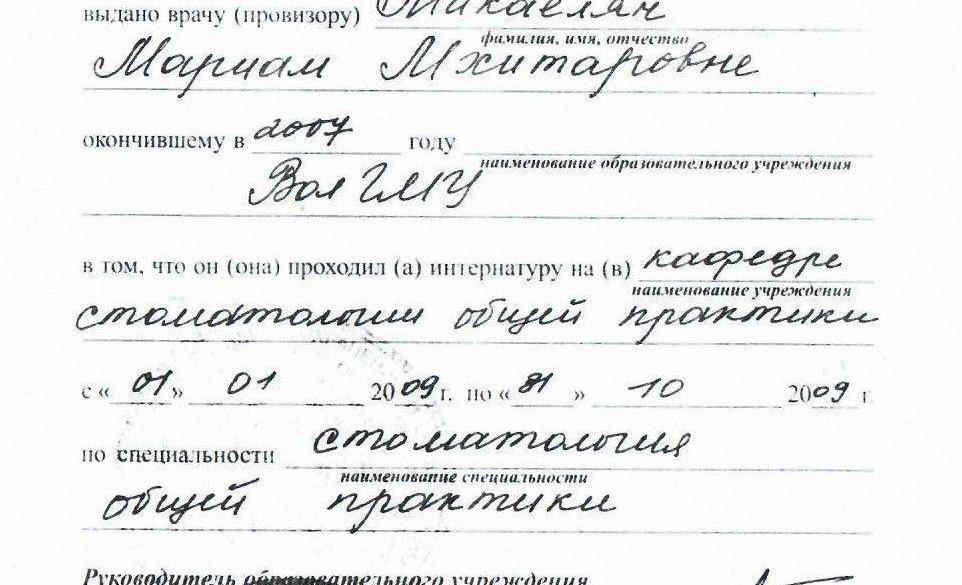 выдано врачу (провизору) Микаелян
фамилия, имя, отчество
Мариам Мхитаровне
окончившему в 2007 году
наименование образовательного учреждения
ВолГМУ
в том, что он (она) проходил (а) интернатуру на (в) кафедре
наименование учреждения
стоматологии общей практики
с «01» 01 2009 г. по «31» 10 2009 г.
по специальности стоматология
наименование специальности
общей практики
Руководитель образовательного учреждения